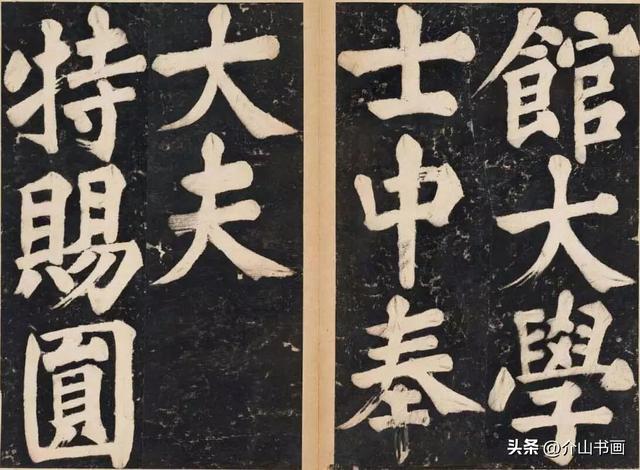 館大學
士中奉
大夫
特賜圓
头条 @介山书画